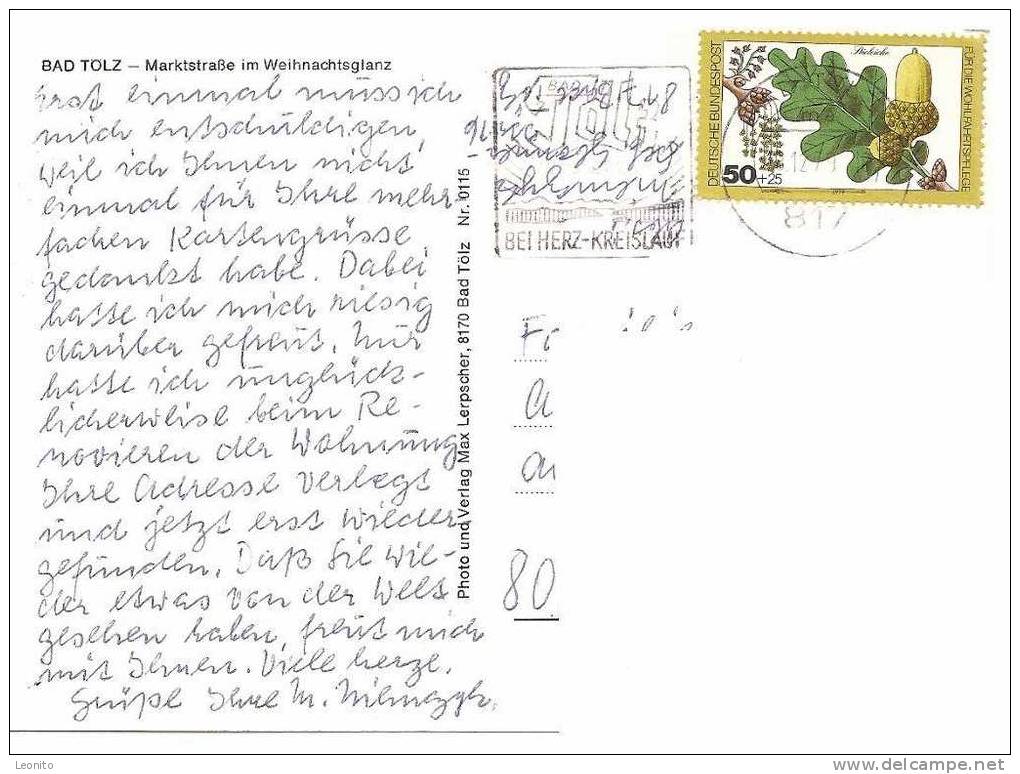 BAD TÖLZ – Marktstraße im Weihnachtsglanz
Erst einmal muss ich
mich entschuldigen,
weil ich Ihnen nicht
einmal für Ihre mehr
fachen Kartengrüsse
gedankt habe. Dabei
hatte ich mich riesig
darüber gefreut. Nur
hatte ich unglück-
licherweise beim Re-
novieren der Wohnung
Ihre Adresse verlegt
und jetzt erst wieder
gefunden. Daß Sie wie-
der etwas von der Welt
gesehen haben, freut mich
mit Ihnen. Viele herzl.
Grüße Ihre M.
Photo und Verlag Max Lerpscher, 8170 Bad Tölz Nr. 0115
BEI HERZ-KREISLAUF
817
DEUTSCHE BUNDESPOST
Stieleiche
FÜR DIE WOHLFAHRTSPFLEGE
50+25
1979
80
Leonito
www.delcampe.net